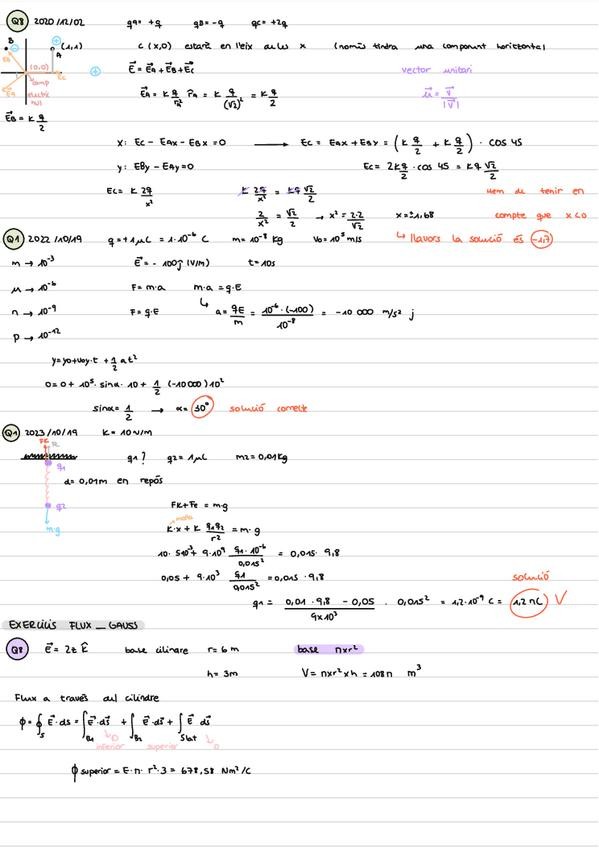 Q8 2020/12/02 qA= +q qB=-q qC= +2q
B (1,1) C (x,0) estarà en l'eix de les x (només tindrà una component horitzontal)
A
(0,0) E⃗ = E⃗A+E⃗B+E⃗C vector unitari
camp elèctric nul
E⃗A = K q/r² r̂A = K q/(√2)² = K q/2 u⃗ = v⃗/|v⃗|
E⃗B = K q/2
x: EC - EAx - EBx = 0 → EC = EAx + EBx = (K q/2 + K q/2) · cos 45
y: EBy - EAy = 0 EC = 2K q/2 · cos 45 = K q √2/2
EC = K 2q/x² K 2q/x² = K q √2/2 Hem de tenir en
2/x² = √2/2 → x² = 2·2/√2 x=±1,68 compte que x<0
↳ llavors la solució és -1,7
Q1 2022/10/19 q=+1μC = 1·10⁻⁶ C m=10⁻⁸ Kg v0= 10⁵ m/s
m → 10⁻³ E⃗ = - 100ĵ (V/m) t= 10s
μ → 10⁻⁶ F= m·a m·a = q·E
n → 10⁻⁹ F= q·E ↳ a= qE/m = 10⁻⁶·(-100)/10⁻⁸ = -10 000 m/s² j
p → 10⁻¹²
y= y0+v0y·t + 1/2 at²
0= 0 + 10⁵· sinα· 10 + 1/2 (-10 000) 10²
sinα= 1/2 → α= 30° solució correcte
Q1 2023/10/19 K= 10N/m
q1 q1? q2= 1μC m2= 0,01Kg
d= 0,01m en repòs
q2
m·g FK+Fe = m·g
molla
K·x + K q1q2/r² = m·g
10· 5·10⁻³ + 9·10⁹ q1·10⁻⁶/0,015² = 0,015· 9,8
0,05 + 9·10³ q1/0,015² = 0,015 · 9,8 solució
q1 = 0,01 · 9,8 - 0,05/9x10³ · 0,015² = 1,2·10⁻⁹ C = 1,2 nC V
EXERCICIS FLUX _ GAUSS
Q8 E⃗ = 2z k̂ base cilindre r= 6m base πxr²
h= 3m V= πxr²xh = 108π m³
Flux a través del cilindre
ϕ= ∮s E⃗·ds = ∫B1 E⃗·ds⃗ + ∫B2 E⃗·ds⃗ + ∫Slat E⃗ ds⃗
↳0 ↳0
inferior superior
ϕ superior = E·π· r²·3 = 678,58 Nm²/C